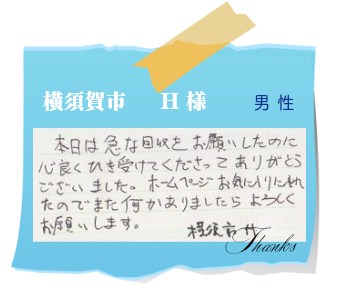 横須賀市 H様 男性
本日は急な回収をお願いしたのに
心良くひき受けてくださってありがとう
ございました。ホームページお気に入りに入れ
たのでまた何かありましたらよろしく
お願いします。
横須賀市 H
Thanks